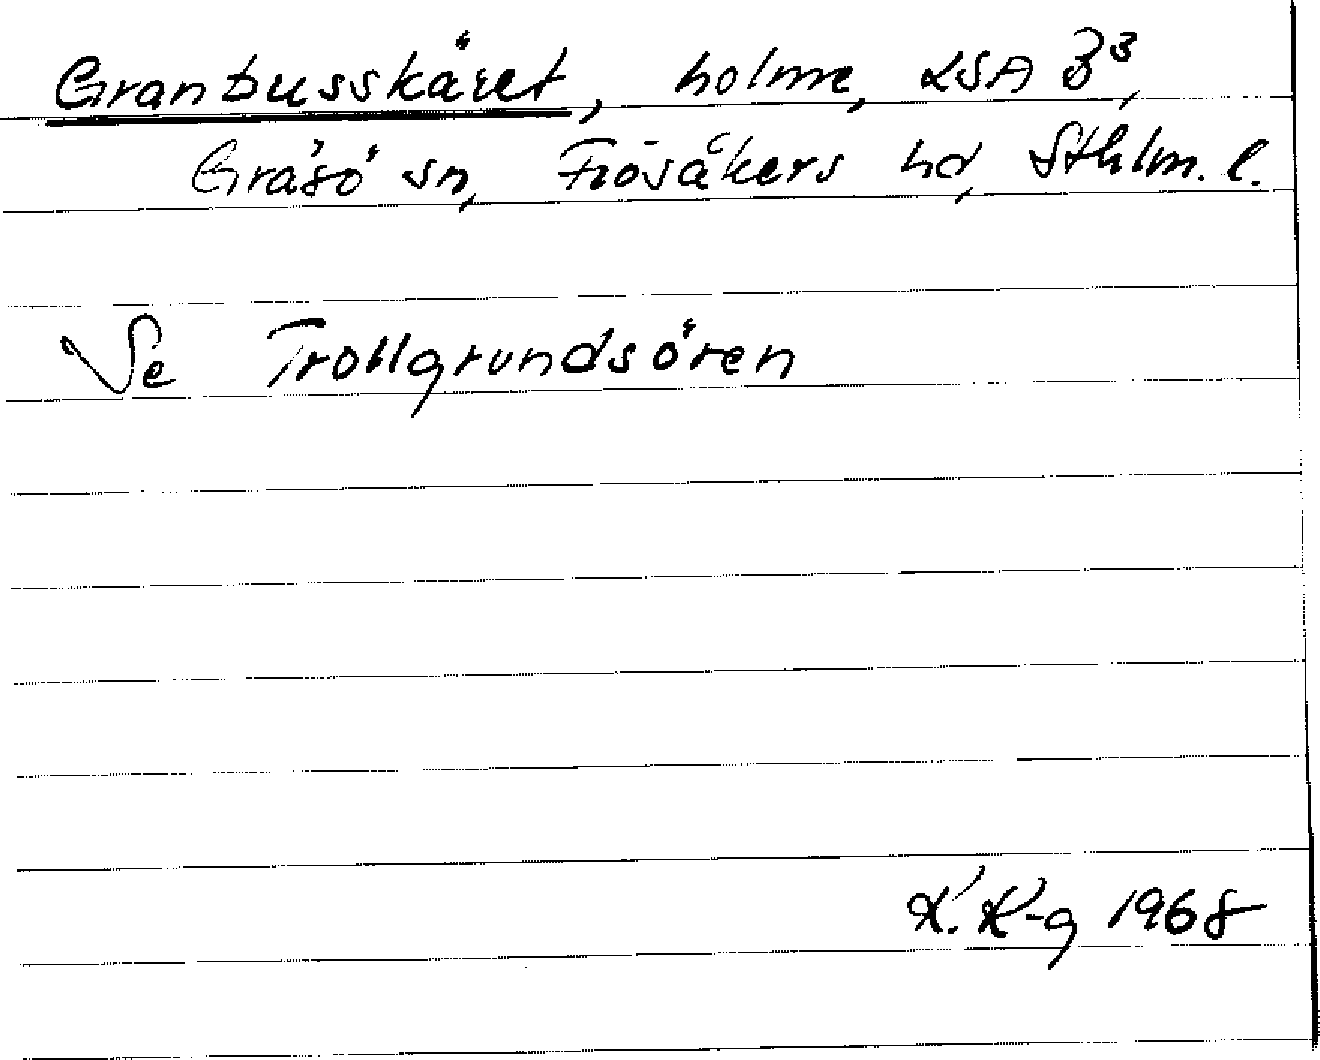 Granbusskäret, holme, LSA B³,
Gräsö sn, Frösåkers hd, Sthlm. l.
Se Trollgrundsören
K. K-g 1968